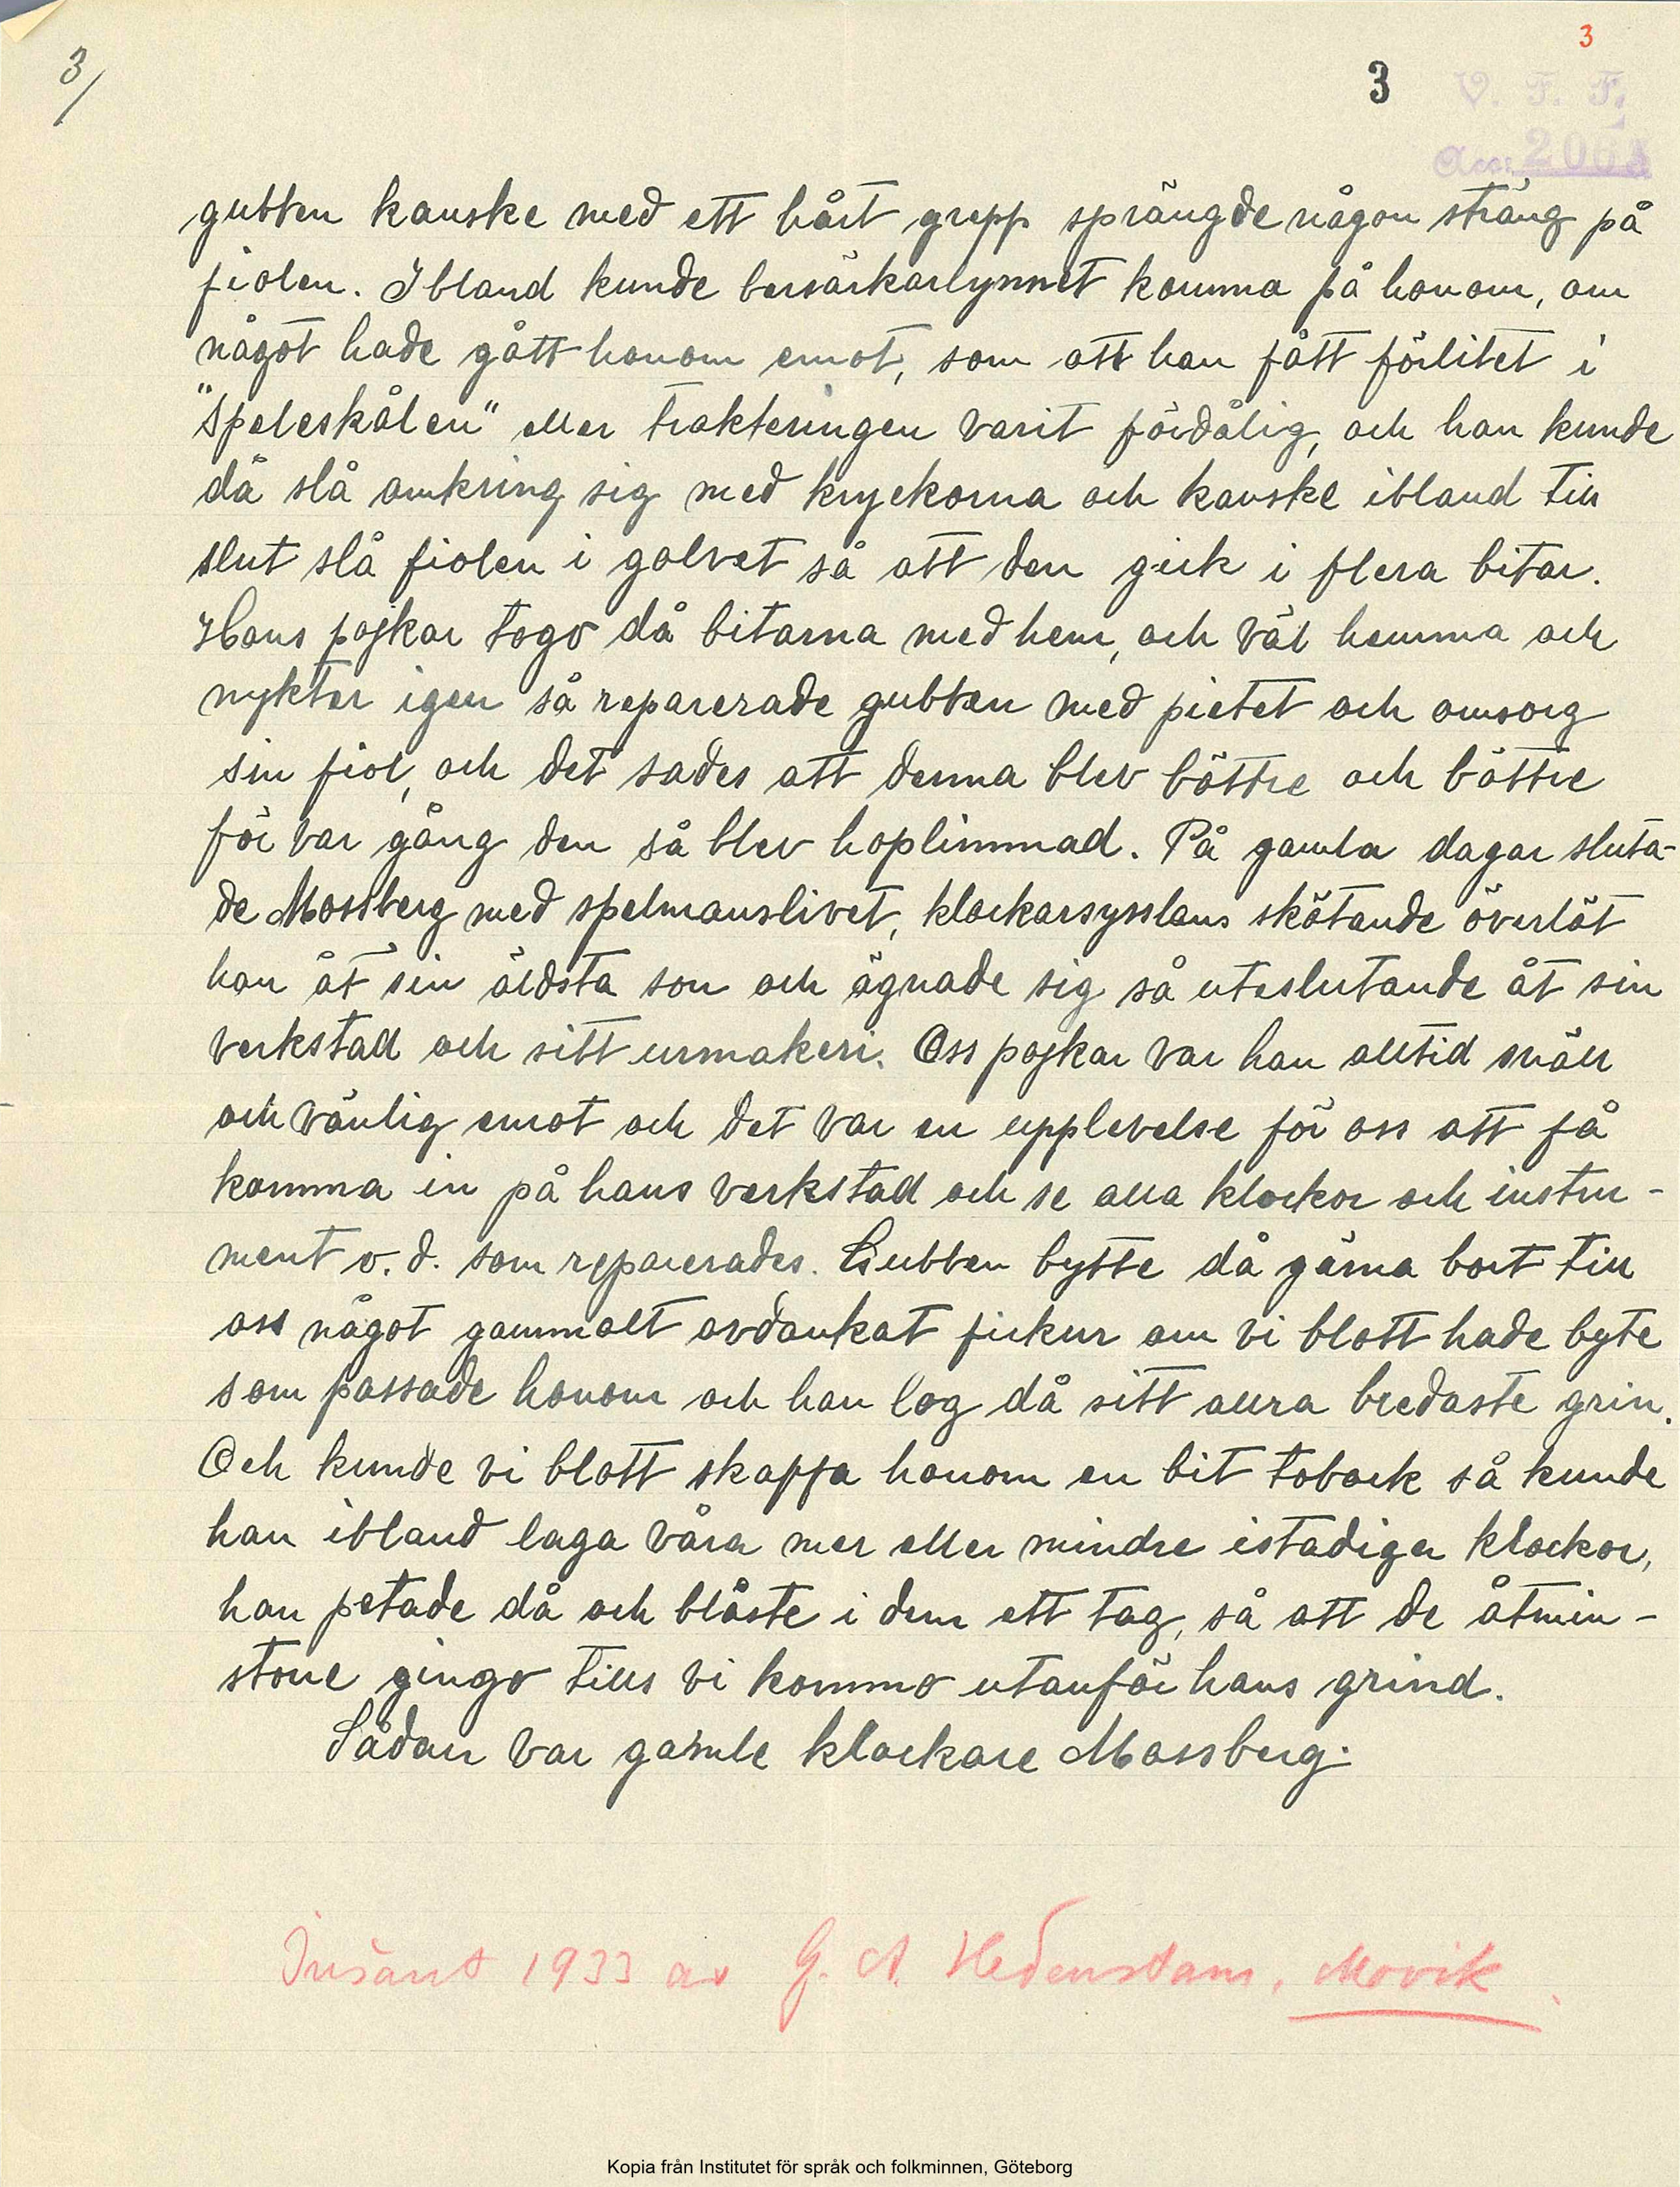 3/
3
3
V. F. F.
Acc:
gubben kanske med ett hårt grepp sprängde någon sträng på
fiolen. Ibland kunde bersärkarlynnet komma på honom, om
något hade gått honom emot, som att han fått förlitet i
"speleskålen" eller trakteringen varit fördålig, och han kunde
då slå omkring sig med kryckorna och kanske ibland till
slut slå fiolen i golvet så att den gick i flera bitar.
Hans pojkar togo då bitarna med hem, och väl hemma och
nykter igen så reparerade gubben med pietet och omsorg
sin fiol, och det sades att denna blev bättre och bättre
för var gång den så blev hoplimmad. På gamla dagar sluta-
de Mossberg med spelmanslivet, klockarsysslans skötande överlät
han åt sin äldsta son och ägnade sig så uteslutande åt sin
verkstad och sitt urmakeri. Oss pojkar var han alltid snäll
och vänlig emot och det var en upplevelse för oss att få
komma in på hans verkstad och se alla klockor och instru-
ment o. d. som reparerades. Gubben bytte då gärna bort till
oss något gammalt avdankat fickur om vi blott hade byte
som passade honom och han log då sitt allra bredaste grin.
Och kunde vi blott skaffa honom en bit toback så kunde
han ibland laga våra mer eller mindre istadiga klockor,
han petade då och blåste i dem ett tag, så att de åtmin-
stone gingo tills vi kommo utanför hans grind.
Sådan var gamle klockare Mossberg.
Insänt 1933 av G. A. Hedenstam, Movik.
Kopia från Institutet för språk och folkminnen, Göteborg